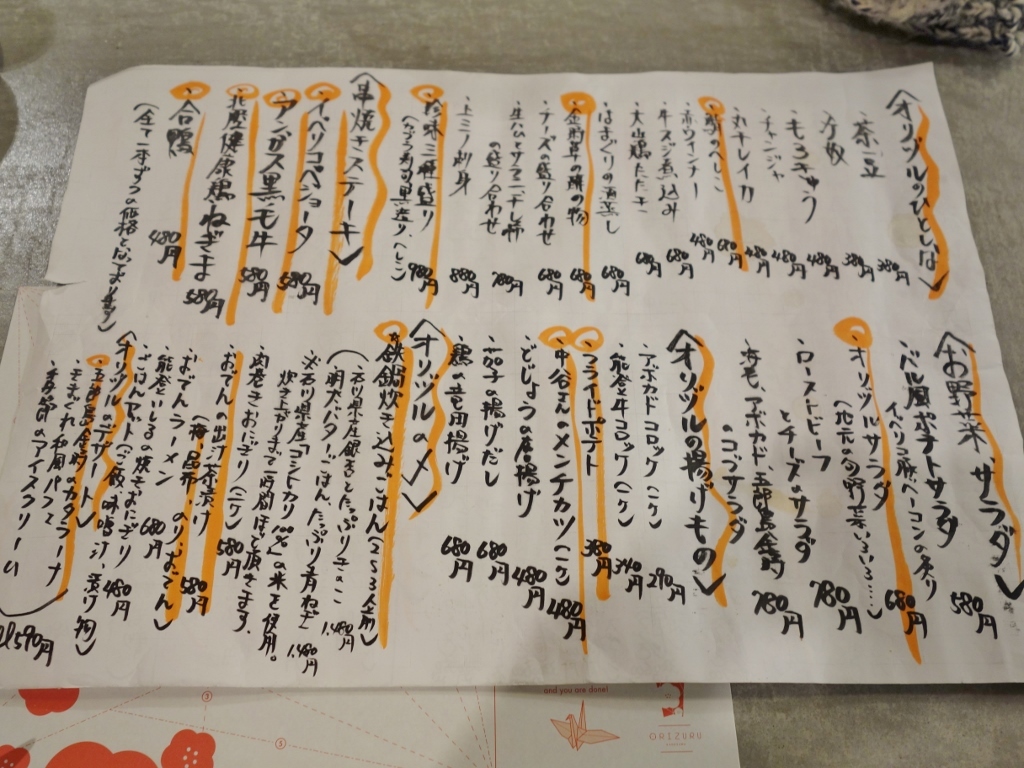 〈オリヅルのひとしな〉
・茶豆 380円
奴 380円
・もろきゅう 480円
・チャンジャ 480円
・丸干しイカ 480円
・鯖のへしこ 680円
・赤ウインナー 480円
・牛スジ煮込み 680円
・大山鶏たたき 680円
・はまぐりの酒蒸し 680円
・金時草の酢の物 680円
・チーズの盛り合わせ 680円
・生ハムとサラミ、干し柿
の盛り合わせ 780円
・上ミノ刺身 880円
・珍味三種盛り 980円
へしこ)
〈串焼きステーキ〉
・イベリコベジョータ 580円
・アンガス黒毛牛 580円
・北陸健康鶏ねぎま 580円
・合鴨 480円
(全て一本ずつの価格となっております)
〈お野菜、サラダ〉
580円
・バル風ポテトサラダ
イベリコ豚ベーコンの香り 680円
・オリヅルサラダ
(地元の旬野菜いろいろ…) 680円
・ローストビーフ
とチーズのサラダ 780円
・海老、アボカド、五郎島金時
のコブサラダ 780円
〈オリヅルの揚げもの〉
・アボカドコロッケ(一ケ) 290円
・能登牛コロッケ(一ケ) 340円
・フライドポテト 380円
・中谷さんのメンチカツ(一ケ) 480円
・どじょうの唐揚げ 480円
・茄子の揚げだし 680円
・鶏の竜田揚げ 680円
〈オリヅルの〆〉
・鉄鍋炊き込みごはん(2〜3人前)
(石川県産鮭とたっぷりきのこ 1,480円
明太バターごはん、たっぷり青ねぎ 1,480円
※石川県産「コシヒカリ100%」の米を使用。
炊き上がりまで一時間ほど頂きます。
・肉巻きおにぎり(一ケ) 580円
・おでんの出汁茶漬け
(梅・昆布・のり・おでん) 580円
・おでんラーメン 680円
・能登いしるの焼きおにぎり 480円
・ごはんアルト(ご飯、味噌汁、漬け物)
〈オリヅルのデザート〉
・五郎島金時のカタラーナ
・きまぐれ和風パフェ
のアイスクリーム
590円
③
⑤
and you are done!